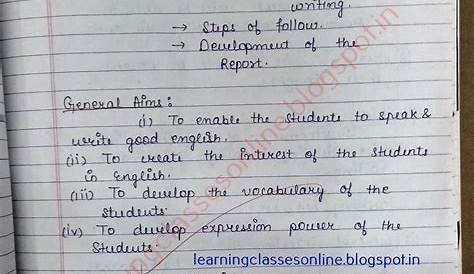 writing.
→ Steps of follow.
→ Development of the
Report.
General Aims :
(i) To enable the students to speak &
write good english.
(ii) To create the interest of the students
in English.
(iii) To develop the vocabulary of the
students.
(iv) To develop expression power of the
Students.
learningclassesonline.blogspot.in